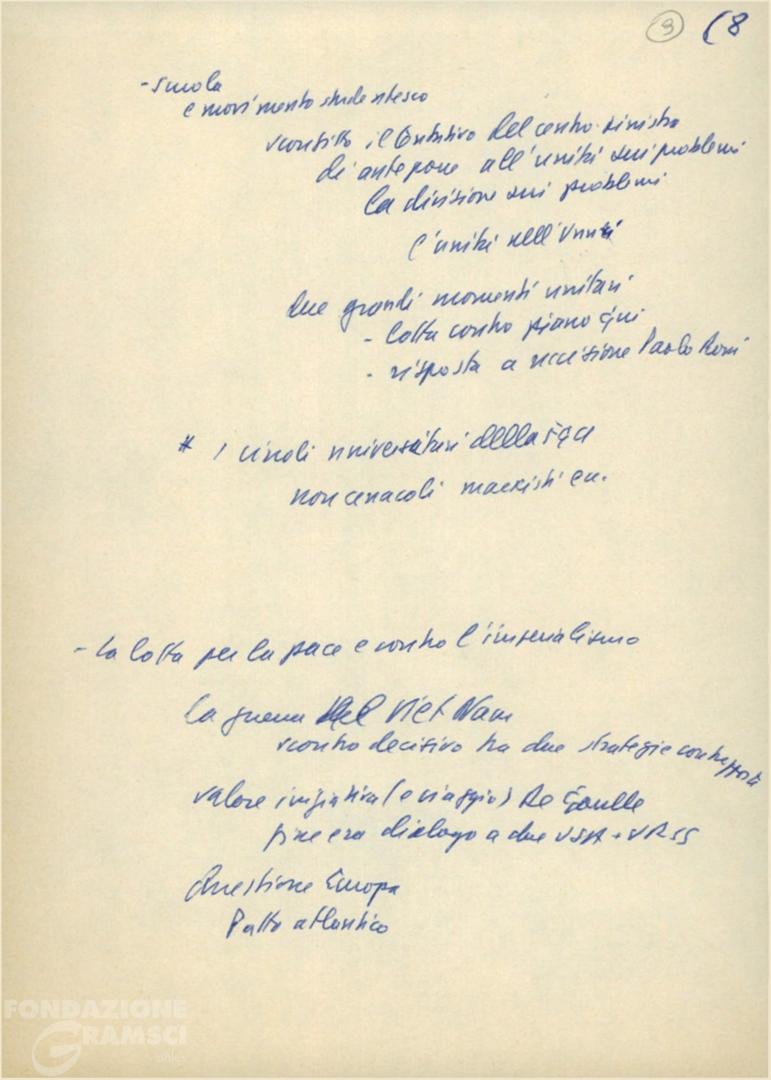 9 (8
- scuola
e movimento studentesco
sconfitto il tentativo del centro-sinistra
di anteporre all'unità sui problemi
la divisione sui problemi
l'unità nell'
due grandi momenti unitari
- lotta contro piano Gui
- risposta a uccisione Paolo Rossi
* i circoli universitari della FGCI
non cenacoli marxisti ecc.
- la lotta per la pace e contro l'imperialismo
la guerra del Viet Nam
scontro decisivo tra due strategie contrapposte
valore iniziativa (e viaggio) De Gaulle
fine era dialogo a due USA + URSS
Questione Europa
Patto atlantico
FONDAZIONE
GRAMSCI
onlus